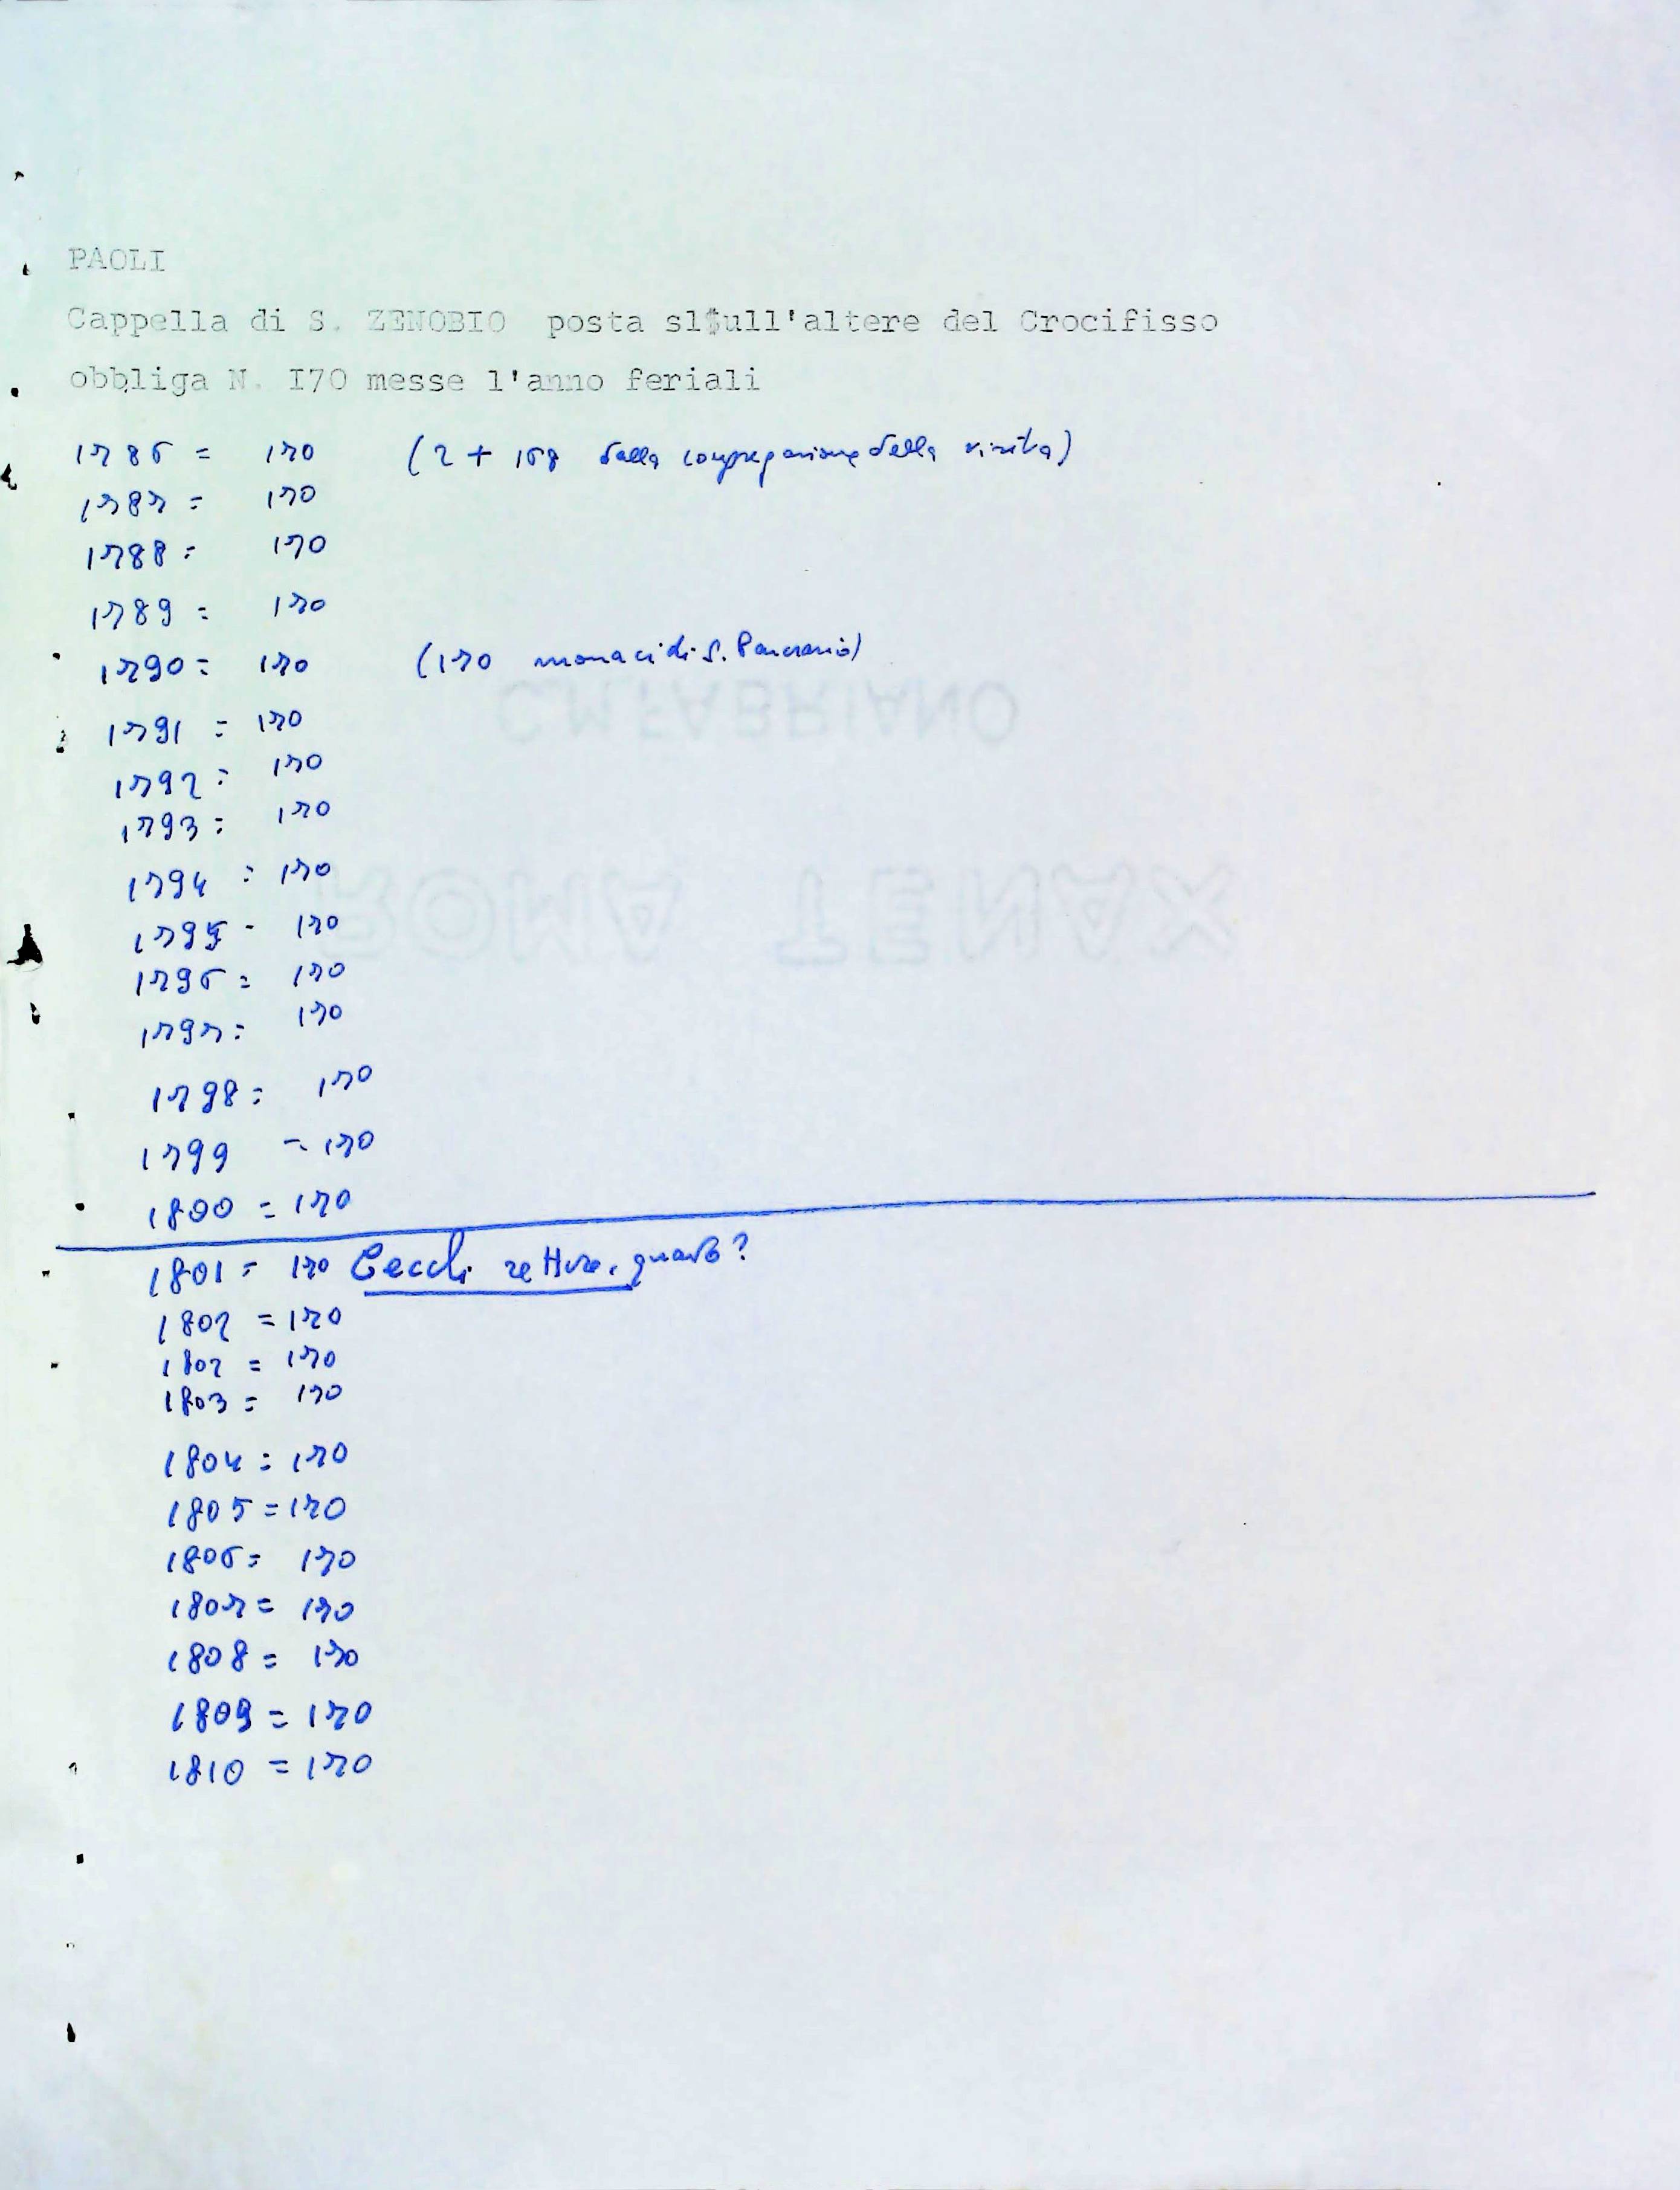 PAOLI
Cappella di S. ZENOBIO posta sl$ull'altere del Crocifisso
obbliga N. I70 messe l'anno feriali
1786 = 170 (2 + 168 dalla congregazione della visita)
1787 = 170
1788 = 170
1789 = 170
1790 = 170 (170 monaci di S. Pancrazio)
C.M.FABRIANO
1791 = 170
1792 = 170
1793 = 170
1794 = 170
ROMA TENAX
1795 - 170
1796 = 170
1797 = 170
1798 = 170
1799 = 170
1800 = 170
1801 = 170 Cecchi rettore, quarto?
1802 = 170
1802 = 170
1803 = 170
1804 = 170
1805 = 170
1806 = 170
1807 = 170
1808 = 170
1809 = 170
1810 = 170